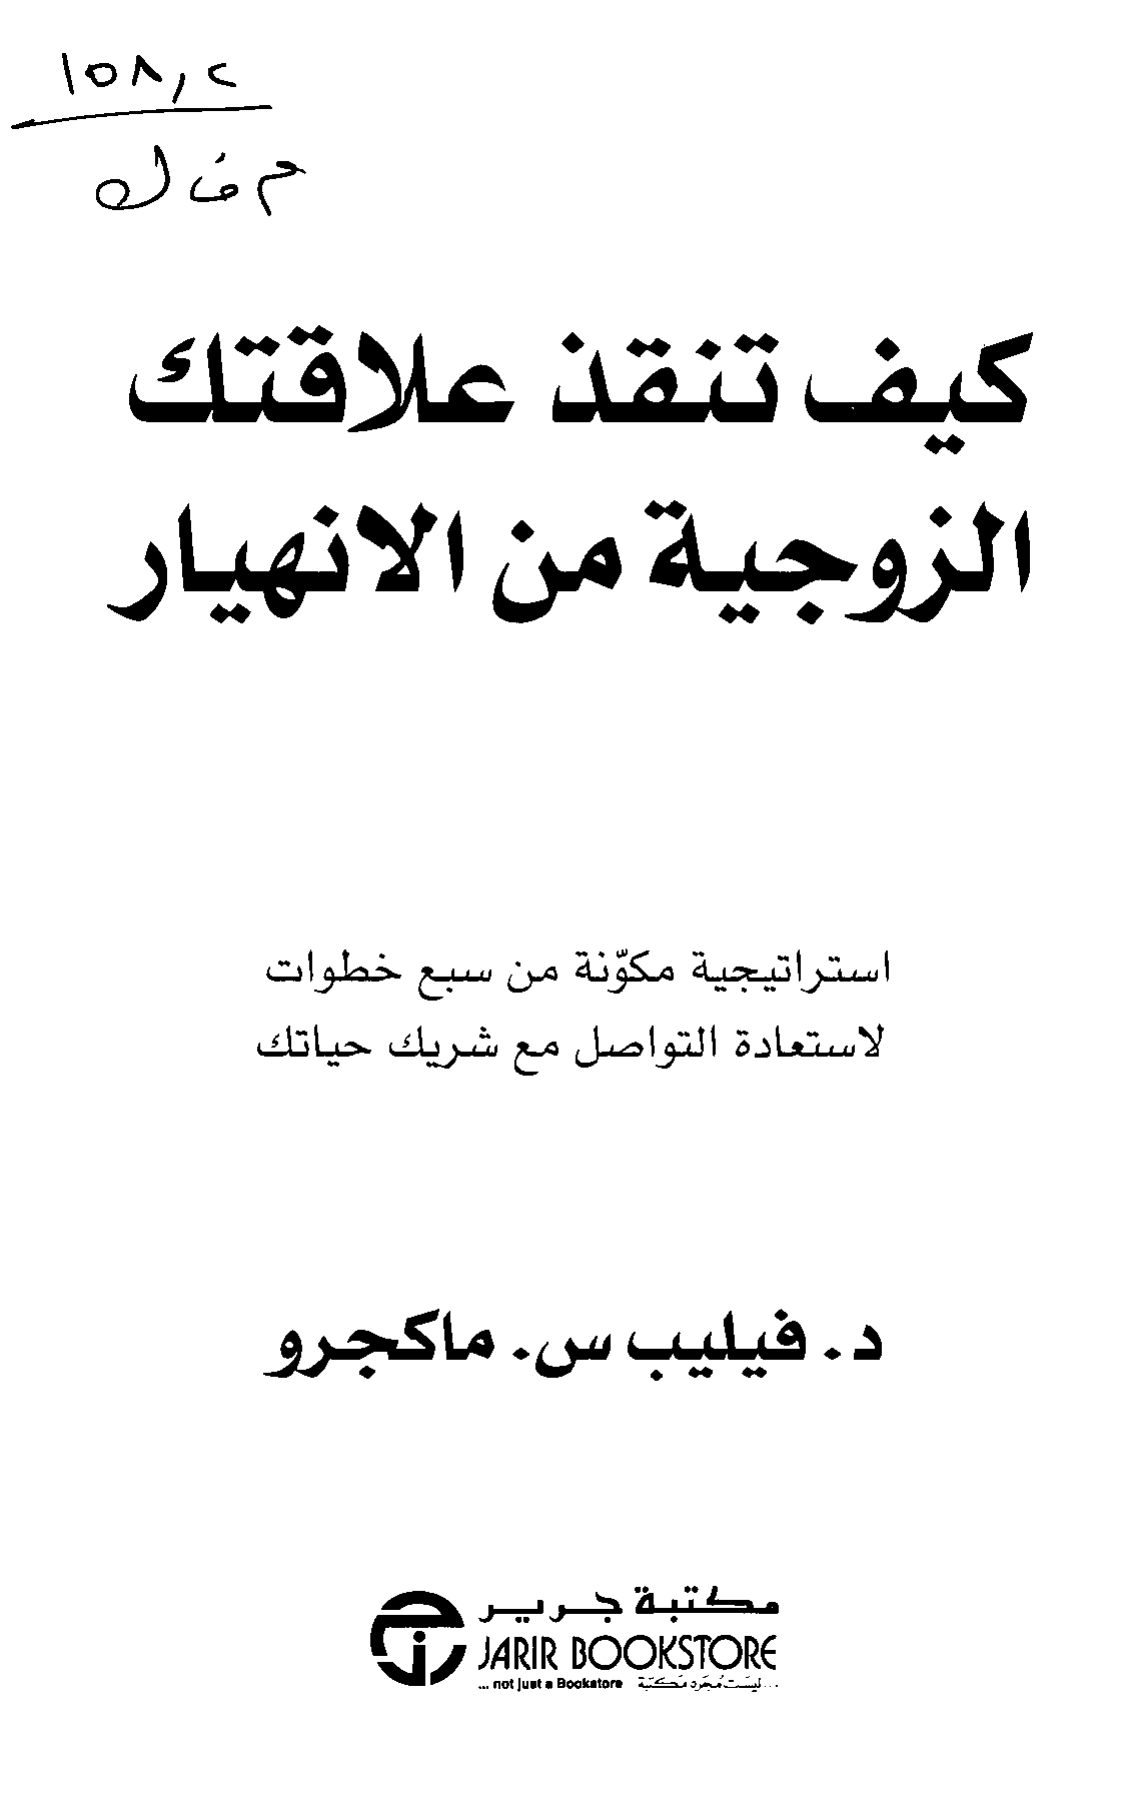 ١٥٨,٢
م ف ك
كيف تنقذ علاقتك
الزوجية من الانهيار
استراتيجية مكوّنة من سبع خطوات
لاستعادة التواصل مع شريك حياتك
د. فيليب س. ماكجرو
مكتبة جرير
JARIR BOOKSTORE
... not just a Bookstore ...ليست مُجرد مكتبة